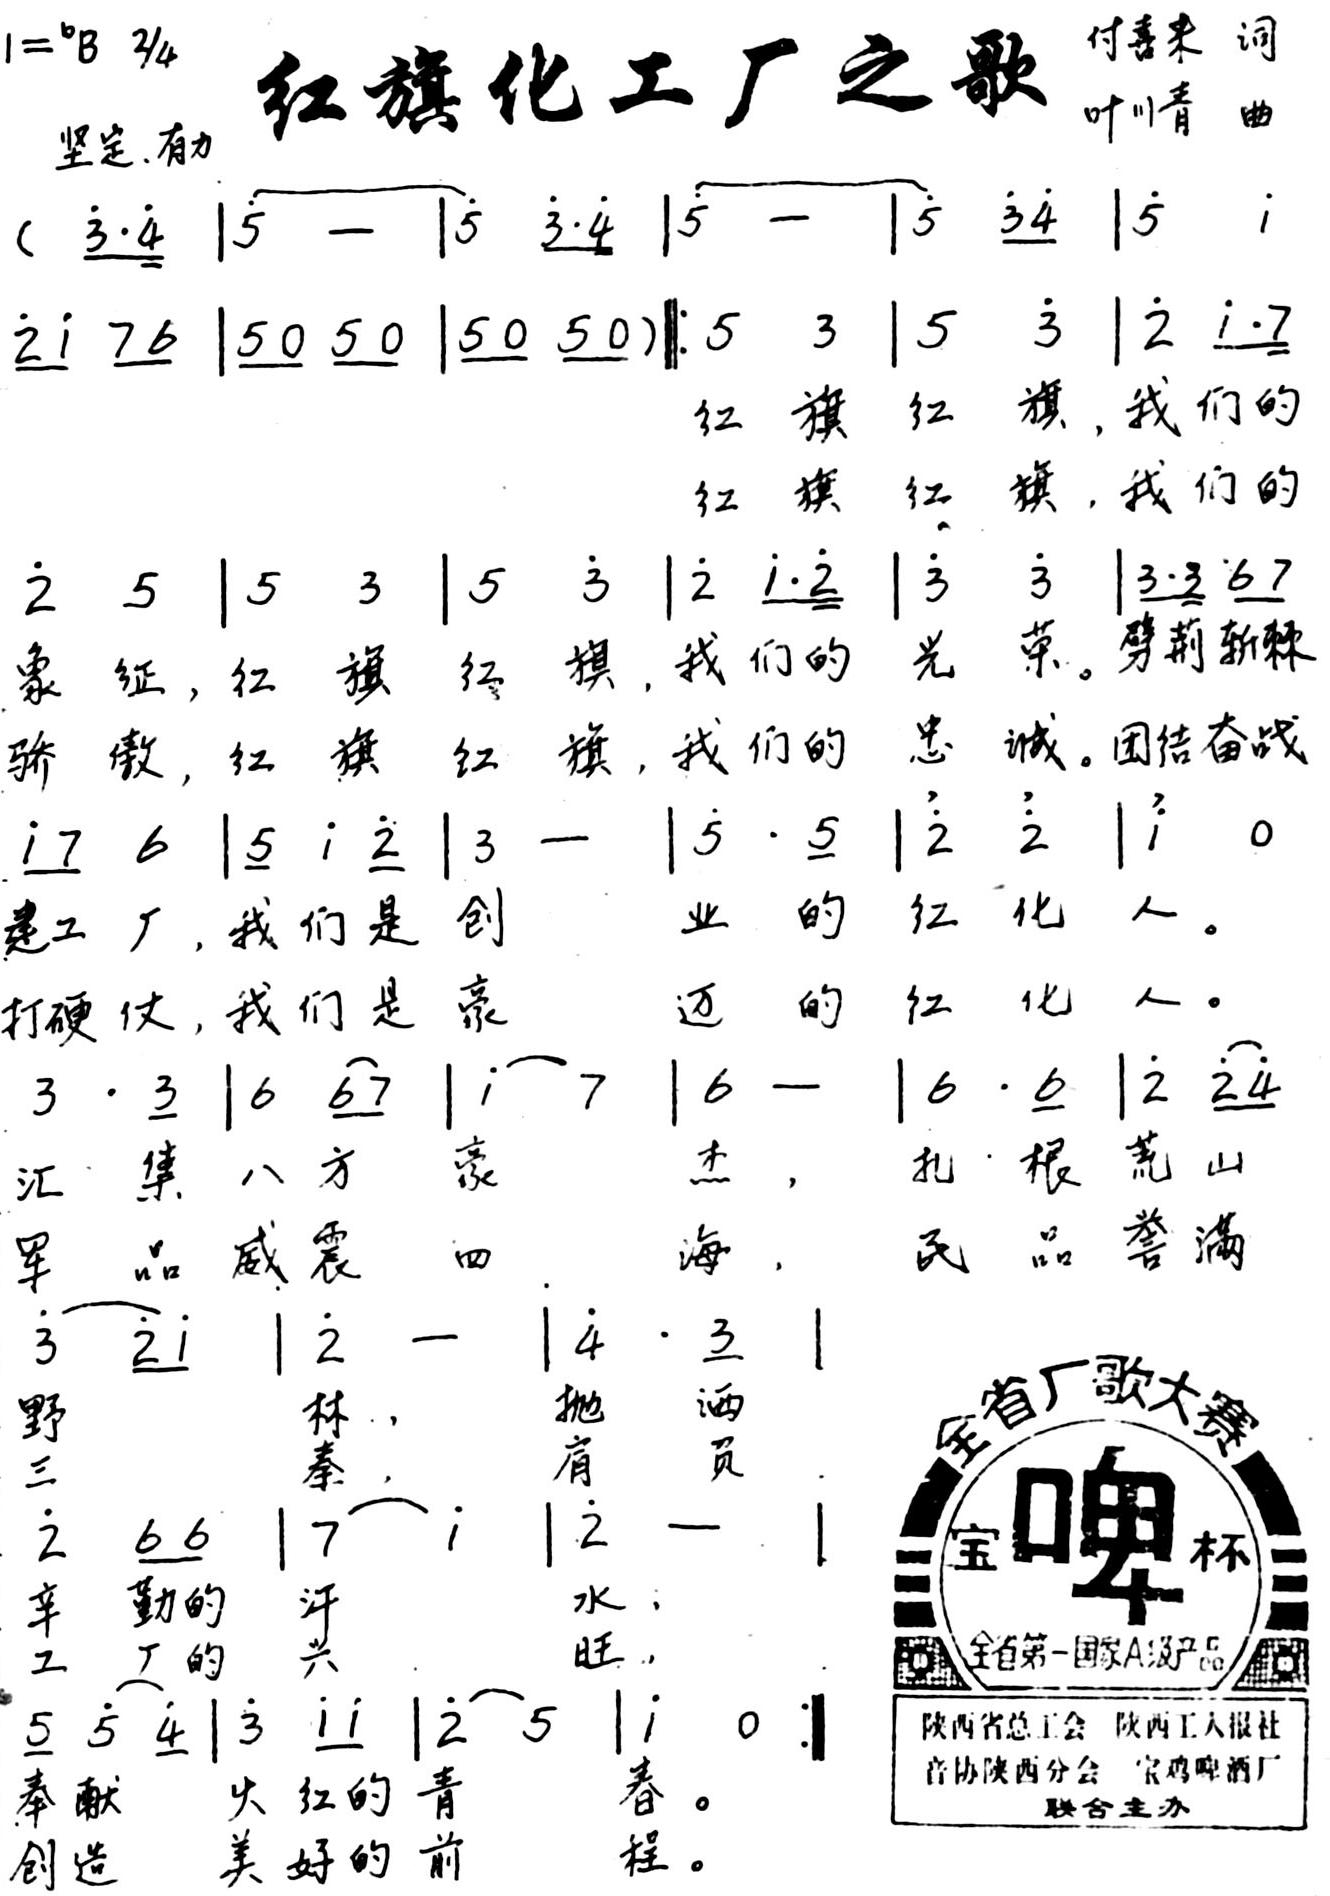 1=ᵇB 2/4
红旗化工厂之歌
付喜来 词
叶川青 曲
坚定、有力
( 3̇·4̇ | 5̇ — | 5̇ 3̇·4̇ | 5̇ — | 5̇ 3̇4̇ | 5̇ i
2̇i 76 | 50 50 | 50 50 ) ‖: 5 3 | 5 3̇ | 2̇ i·7
红旗红旗，我们的
红旗红旗，我们的
2̇ 5 | 5 3 | 5 3̇ | 2̇ i·2̇ | 3̇ 3̇ | 3·3 67
象征，红旗红旗，我们的光荣。劈荆斩棘
骄傲，红旗红旗，我们的忠诚。团结奋战
i7 6 | 5 i 2̇ | 3 — | 5̇ · 5 | 2̇ 2̇ | i 0
建工厂，我们是创业的红化人。
打硬仗，我们是豪迈的红化人。
3 · 3 | 6 67 | i 7 | 6 — | 6 · 6 | 2̇ 2̇4̇
汇集八方豪杰，扎根荒山
军品威震四海，民品誉满
3̇ 2̇i | 2̇ — | 4̇ · 3 |
野林，抛洒
三秦，肩负
2̇ 66 | 7 i | 2̇ — |
辛勤的汗水，
工厂的兴旺，
5 5̇ 4̇ | 3̇ ii | 2̇ 5 | i 0 :‖
奉献火红的青春。
创造美好的前程。
全省厂歌大赛
宝啤杯
全省第一国家A级产品
陕西省总工会 陕西工人报社
音协陕西分会 宝鸡啤酒厂
联合主办